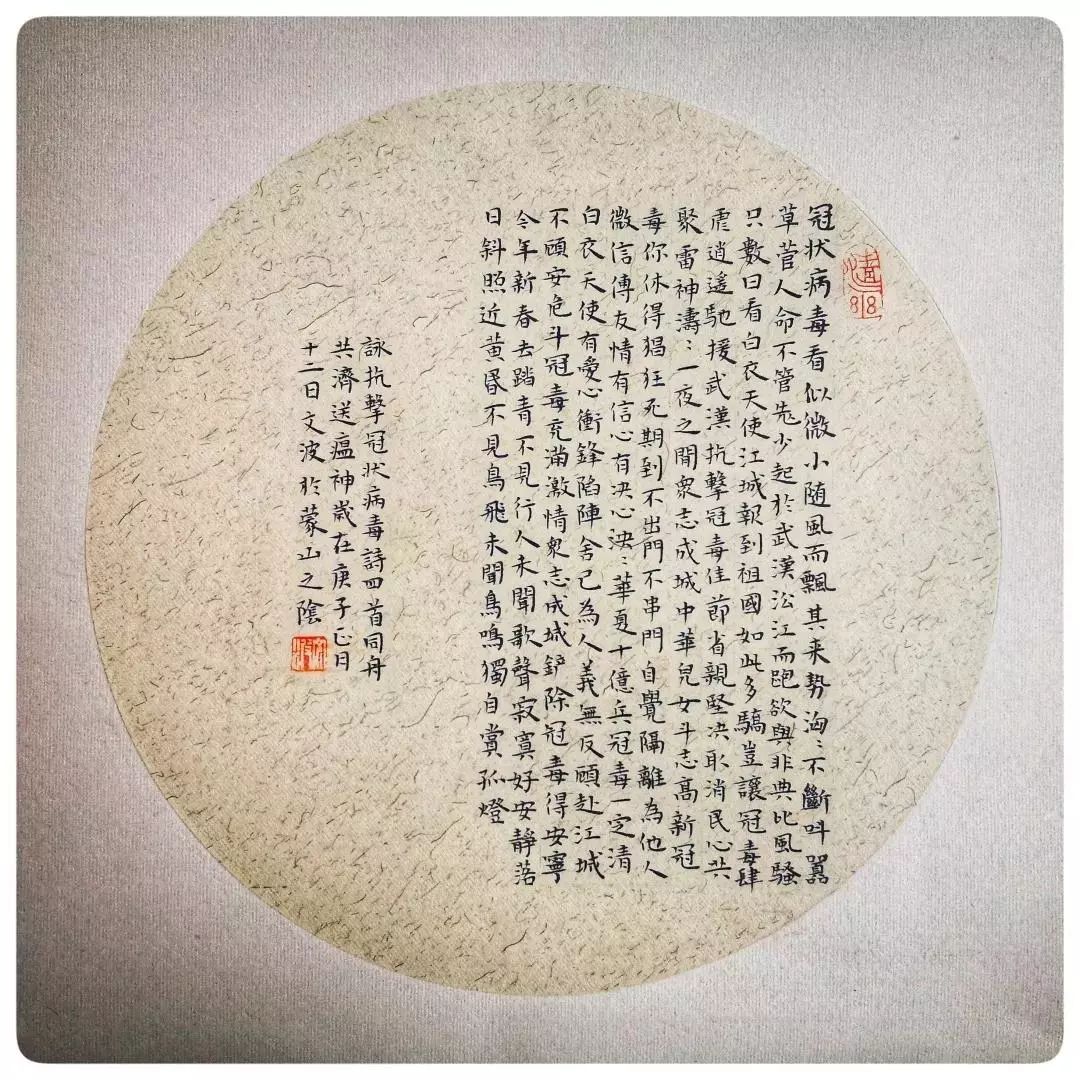 冠状病毒看似微小随風而飄其来势汹：不斷叫囂
草菅人命不管老少起於武漢㳂江而跑欲與非典比風騷
只數日看白衣天使江城報到祖國如此多驕豈讓冠毒肆
虐逍遥馳援武漢抗擊冠毒佳節省親堅决取消民心共
聚雷神濤：一夜之間衆志成城中華兒女斗志高新冠
毒你休得猖狂死期到不出門不串門自覺隔離為他人
微信傳友情有信心有决心泱：華夏十億兵冠毒一定清
白衣天使有愛心衝鋒陷陣舍己為人義無反顧赴江城
不顧安危斗冠毒充滿激情衆志成城鏟除冠毒得安寧
今年新春去踏青不見行人未聞歌聲寂寞好安静落
日斜照近黄昏不見鳥飛未聞鳥鳴獨自賞孤燈
詠抗擊冠状病毒詩四首同舟
共濟送瘟神歲在庚子正月
十二日文波於蒙山之陰